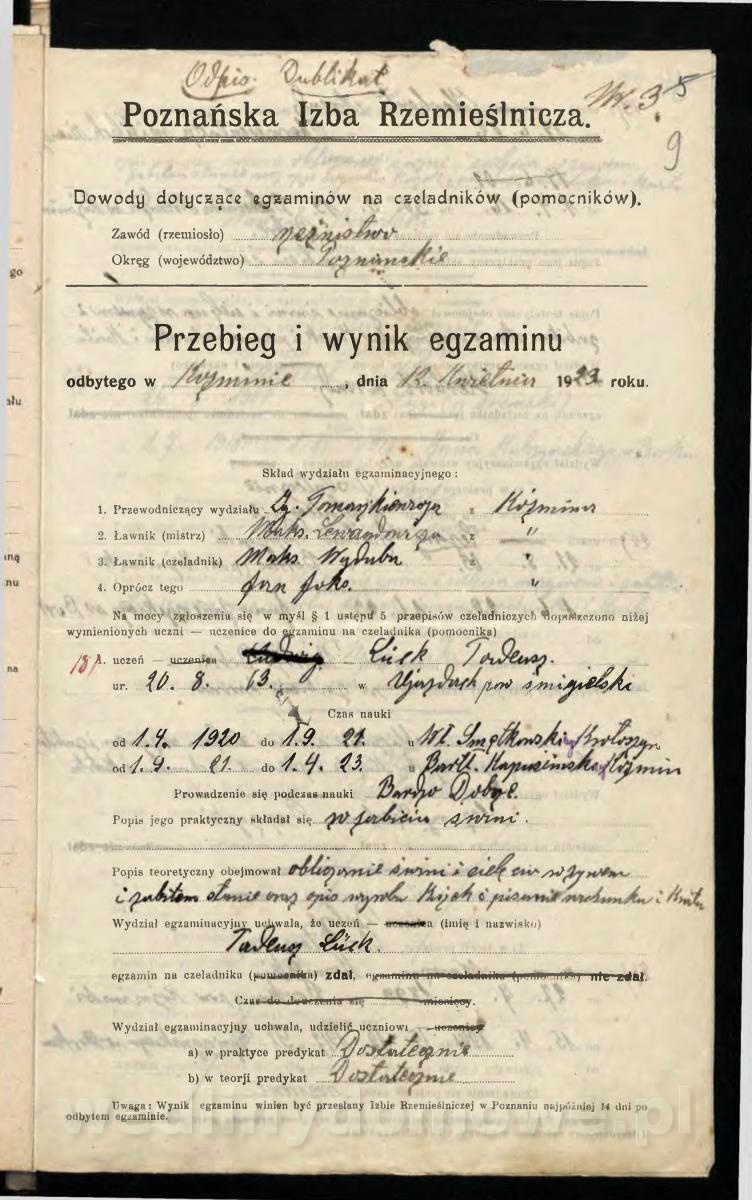 Odpis. Dublikat
Nr. 3 5
Poznańska Izba Rzemieślnicza.
9
Dowody dotyczące egzaminów na czeladników (pomocników).
Zawód (rzemiosło) rzeźnistwo
Okręg (województwo) Poznańskie
Przebieg i wynik egzaminu
odbytego w Koźminie, dnia 12. Kwietnia 1923 roku.
Skład wydziału egzaminacyjnego:
1. Przewodniczący wydziału z Koźmina
2. Ławnik (mistrz) Maks. z "
3. Ławnik (czeladnik) Maks. Wyduba "
4. Oprócz tego Jan "
Na mocy zgłoszenia się w myśl § 1 ustępu 5 przepisów czeladniczych dopuszczono niżej
wymienionych uczni — uczenice do egzaminu na czeladnika (pomocnika)
1. uczeń — uczenica Ludwig Lück Tadeusz.
ur. 20. 8. w pow śmigielski
Czas nauki
od 1.4. 1920 do 1.9. 21. u Wł. Smętkowski Krotoszyn
od 1.9. 21. do 1.4. 23. u Bartł. Koźmin
Prowadzenie się podczas nauki Bardzo Dobre.
Popis jego praktyczny składał się w zabiciu świni.
Popis teoretyczny obejmował obliczanie świni i cielęcia w żywem
i zabitem stanie oraz opis wyrobu i pisanie rachunku i
Wydział egzaminacyjny uchwala, że uczeń — uczenica (imię i nazwisko)
Tadeusz Lück.
egzamin na czeladnika (pomocnika) zdał, egzaminu na czeladnika (pomocnika) nie zdał.
Czas do douczenia się miesięcy.
Wydział egzaminacyjny uchwala, udzielić uczniowi — uczenicy
a) w praktyce predykat Dostatecznie
b) w teorji predykat Dostatecznie
Uwaga: Wynik egzaminu winien być przesłany Izbie Rzemieślniczej w Poznaniu najpóźniej 14 dni po
odbytem egzaminie.